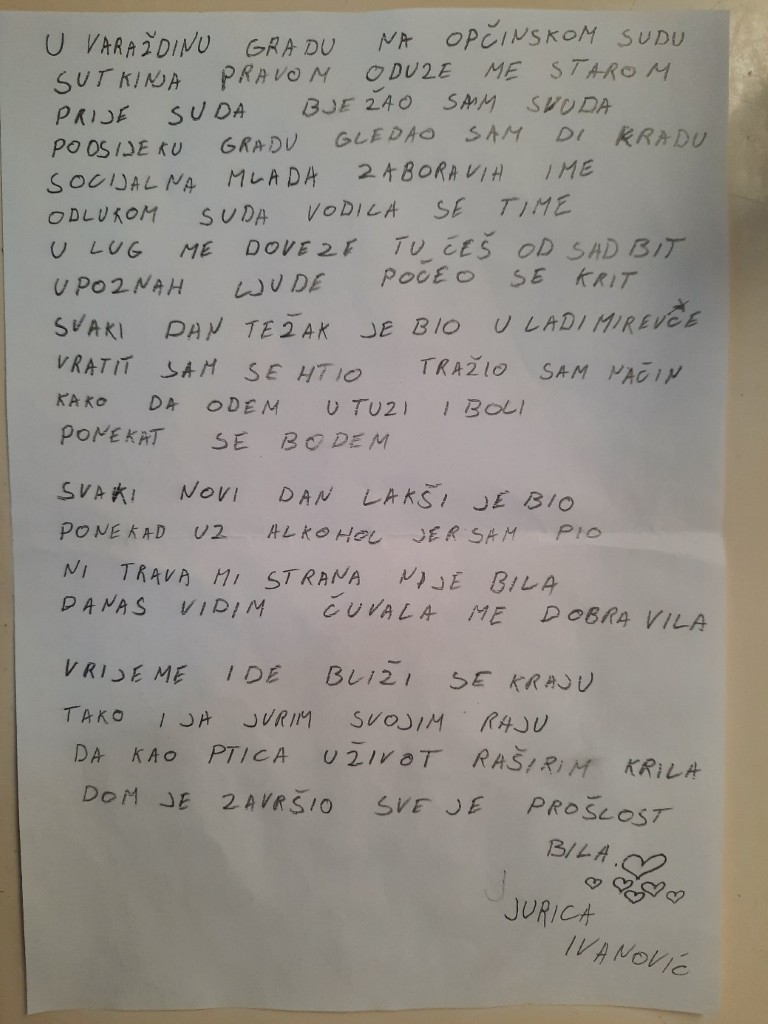 U VARAŽDINU GRADU NA OPČINSKOM SUDU
SUTKINJA PRAVOM ODUZE ME STAROM
PRIJE SUDA BJEŽAO SAM SVUDA
PO OSIJEKU GRADU GLEDAO SAM DI KRADU
SOCIJALNA MLADA ZABORAVIH IME
ODLUKOM SUDA VODILA SE TIME
U LUG ME DOVEZE TU ĆEŠ OD SAD BIT
UPOZNAH LJUDE POČEO SE KRIT
SVAKI DAN TEŽAK JE BIO U LADIMIREVCE
VRATIT SAM SE HTIO TRAŽIO SAM NAČIN
KAKO DA ODEM U TUZI I BOLI
PONEKAT SE BODEM
SVAKI NOVI DAN LAKŠI JE BIO
PONEKAD UZ ALKOHOL JER SAM PIO
NI TRAVA MI STRANA NIJE BILA
DANAS VIDIM ČUVALA ME DOBRA VILA
VRIJEME IDE BLIŽI SE KRAJU
TAKO I JA JURIM SVOJIM RAJU
DA KAO PTICA U ŽIVOT RAŠIRIM KRILA
DOM JE ZAVRŠIO SVE JE PROŠLOST
BILA.
JURICA
IVANOVIĆ